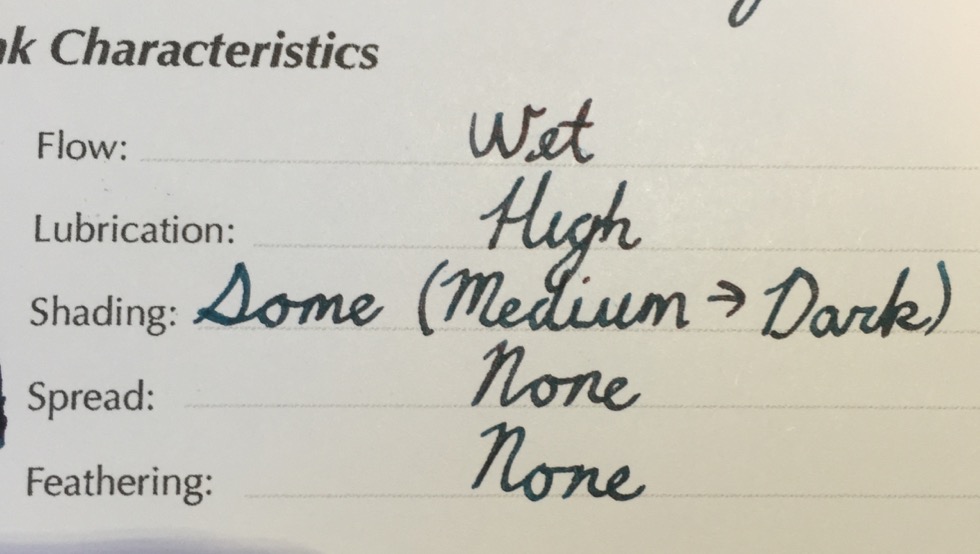 nk Characteristics
Flow: Wet
Lubrication: High
Shading: Some (Medium → Dark)
Spread: None
Feathering: None